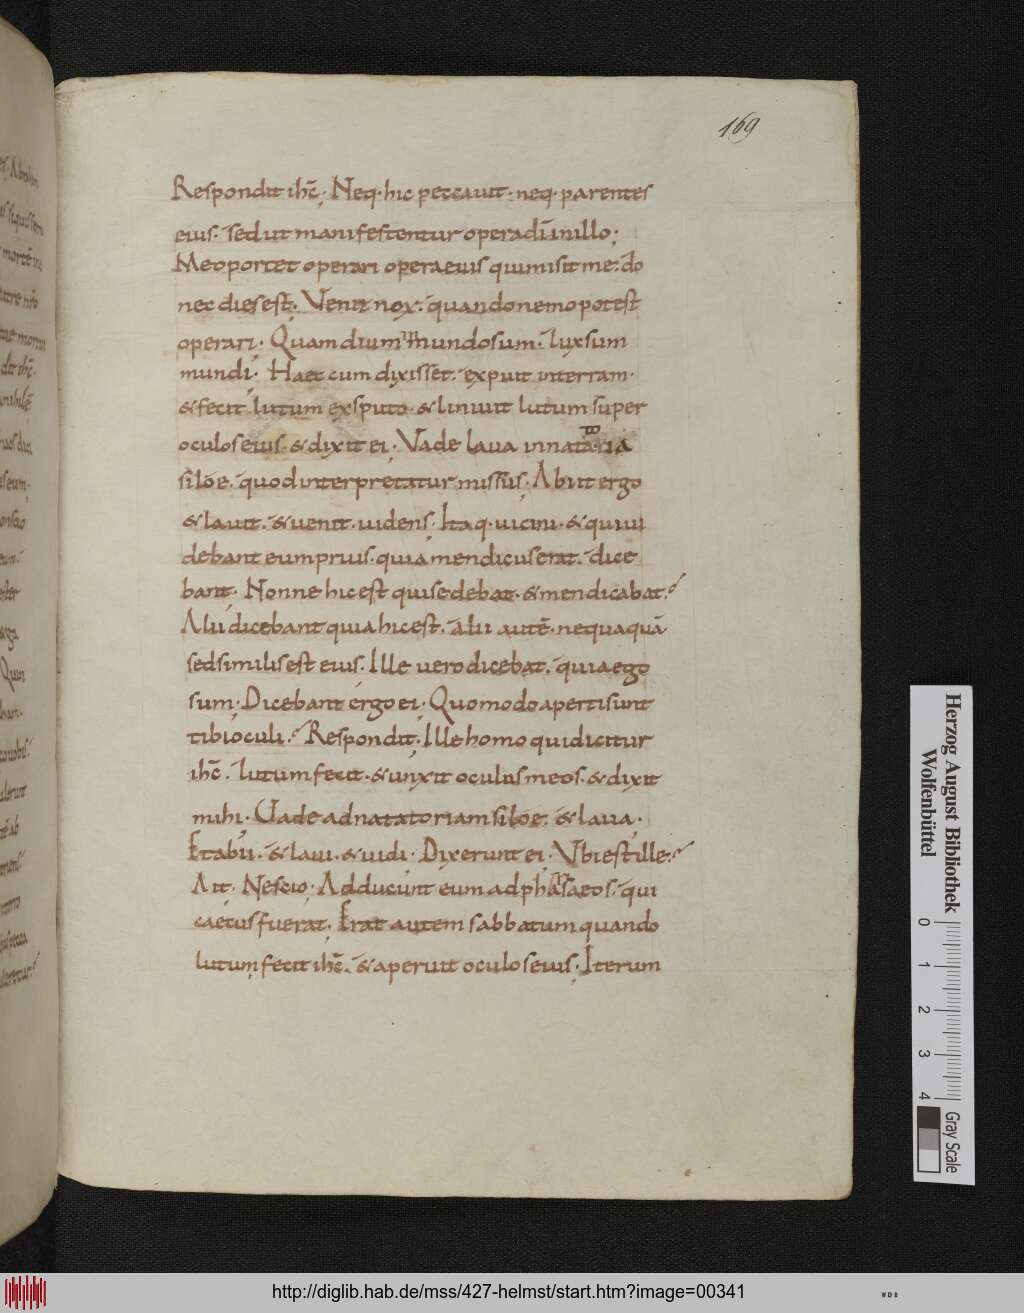 169
Respondit ihc̄; Neq· hic peccauit· neq· parentes
eius· sed ut manifestentur opera dī in illo;
Me oportet operari opera eius qui misit me· do
nec dies est; Venit nox· quando nemo potest
operari; Quam diu in mundo sum· lux sum
mundi; Haec cum dixisset· expuit in terram·
& fecit lutum ex sputo· & liniuit lutum super
oculos eius· & dixit ei; Vade laua in natatoria
siloe· quod interpretatur missus; Abiit ergo
& lauit· & uenit uidens; Itaq· uicini· & qui ui
debant eum prius· quia mendicus erat· dice
bant; Nonne hic est qui sedebat· & mendicabat?
Alii dicebant quia hic est· alii autē· nequaquā
sed similis est eius; Ille uero dicebat· quia ego
sum; Dicebant ergo ei; Quomodo aperti sunt
tibi oculi? Respondit; Ille homo qui dicitur
ihc̄· lutum fecit· & unxit oculus meos· & dixit
mihi; Uade ad natatoriam siloe· & laua·
Et abii· & laui· & uidi; Dixerunt ei; Vbi est ille?
Ait; Nescio; Adducunt eum ad pharisaeos· qui
caecus fuerat; Erat autem sabbatum quando
lutum fecit ihc̄· & aperuit oculos eius; Iterum
Herzog August Bibliothek
Wolfenbüttel
0 1 2 3 4
Gray Scale
http://diglib.hab.de/mss/427-helmst/start.htm?image=00341